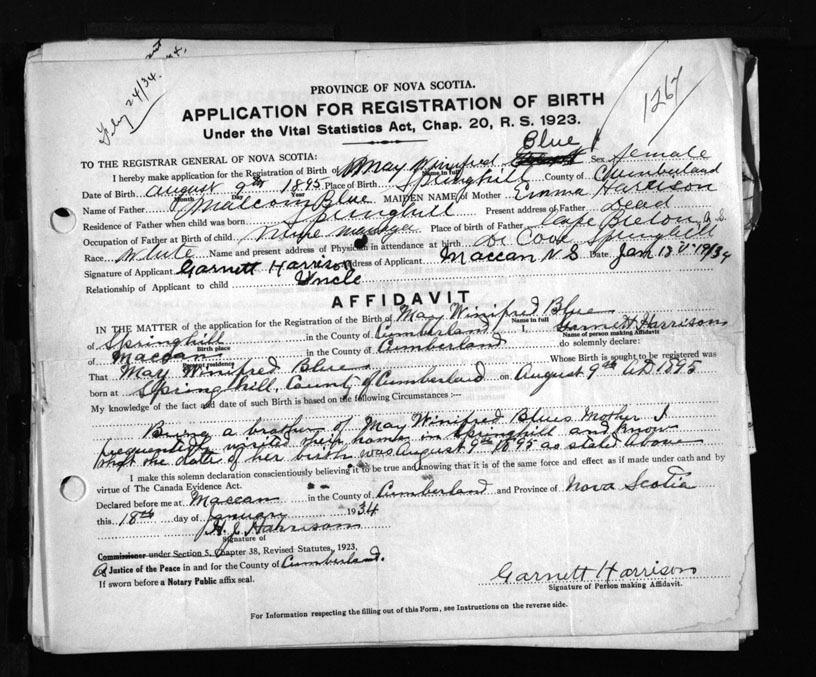 Feby 24/34
1267
PROVINCE OF NOVA SCOTIA.
APPLICATION FOR REGISTRATION OF BIRTH
Under the Vital Statistics Act, Chap. 20, R. S. 1923.
TO THE REGISTRAR GENERAL OF NOVA SCOTIA: Blue
I hereby make application for the Registration of Birth of May Winifred Name in full Sex female
Date of Birth August 9th 1895 Place of Birth Springhill County of Cumberland
Month Day Year
Name of Father Malcom Blue MAIDEN NAME of Mother Emma Harrison
Residence of Father when child was born Springhill Present address of Father Dead
Occupation of Father at Birth of child Mine Manager Place of birth of Father Cape Breton
Race White Name and present address of Physician in attendance at birth Dr Cook Springhill
Signature of Applicant Garnett Harrison Address of Applicant Maccan N S Date Jan 18 1934
Relationship of Applicant to child Uncle
AFFIDAVIT
IN THE MATTER of the application for the Registration of the Birth of May Winifred Blue
Name in full
of Springhill in the County of Cumberland I, Garnett Harrison
Birth place Name of person making Affidavit.
of Maccan in the County of Cumberland do solemnly declare:
residence
That May Winifred Blue Whose Birth is sought to be registered was
born at Springhill, County of Cumberland on August 9th AD 1895
My knowledge of the fact and date of such Birth is based on the following Circumstances :--
Being a brother of May Winifred Blues Mother I
frequently visited their home in Springhill and know
that the date of her birth was August 9th 1895 as stated above
I make this solemn declaration conscientiously believing it to be true and knowing that it is of the same force and effect as if made under oath and by
virtue of The Canada Evidence Act.
Declared before me at Maccan in the County of Cumberland and Province of Nova Scotia
this 18th day of January 1934
H. J. Harrison
Signature of
Commissioner under Section 5, Chapter 38, Revised Statutes, 1923,
A Justice of the Peace in and for the County of Cumberland.
If sworn before a Notary Public affix seal.
Garnett Harrison
Signature of Person making Affidavit.
For Information respecting the filling out of this Form, see Instructions on the reverse side.